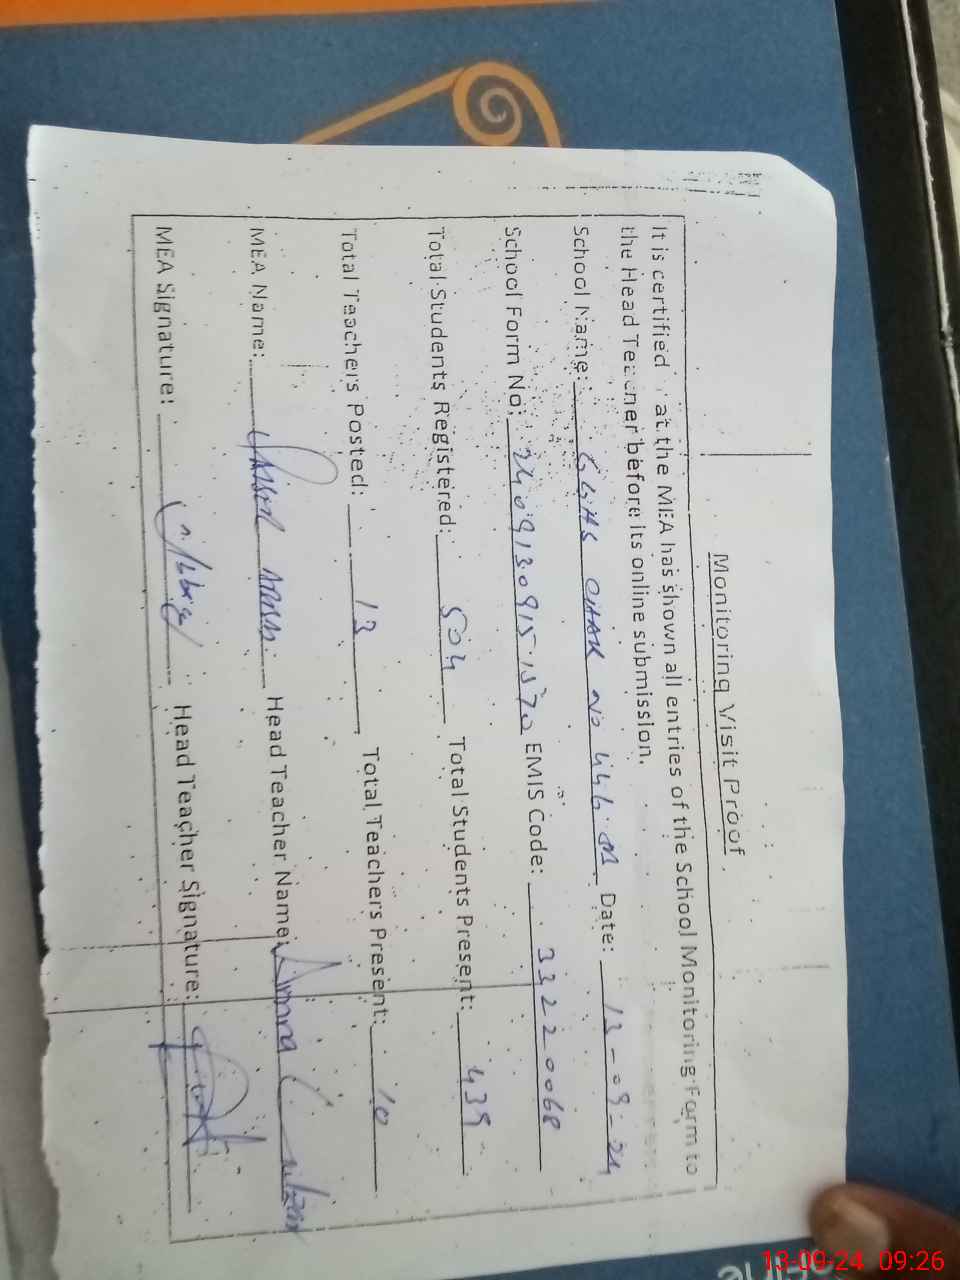 Monitoring Visit Proof
It is certified at the MEA has shown all entries of the School Monitoring Form to
the Head Teacher before its online submission.
School Name: GGHS CHAK NO 446 M Date: 13-09-24
School Form No: EMIS Code: 33220068
Total Students Registered: 504 Total Students Present: 439
Total Teachers Posted: 13 Total Teachers Present: 10
MEA Name: Head Teacher Name:
MEA Signature: Head Teacher Signature:
13-09-24 09:26